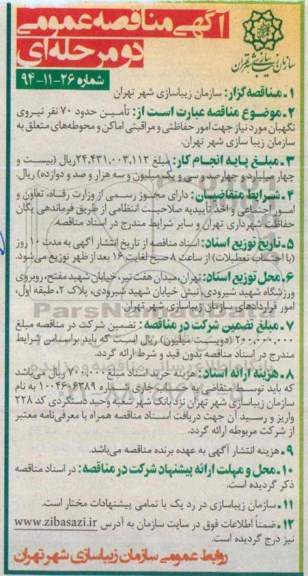 آگهی مناقصه عمومی
دو مرحله‌ای
شماره ۲۶-۱۱-۹۴
سازمان زیباسازی شهر تهران
۱-مناقصه‌گزار: سازمان زیباسازی شهر تهران
۲-موضوع مناقصه عبارت است از: تأمین حدود ۷۰ نفر نیروی
نگهبان مورد نیاز جهت امور حفاظتی و مراقبتی اماکن و محوطه‌های متعلق به
سازمان زیبا سازی شهر تهران.
۳-مبلغ پایه انجام کار: مبلغ ۲۴،۴۳۱،۰۰۳،۱۱۲ریال (بیست و
چهار میلیارد و چهارصد و سی و یک میلیون و سه هزار و صد و دوازده) ریال.
۴-شرایط متقاضیان: دارای مجوز رسمی از وزارت رفاه، تعاون و
امور اجتماعی و اخذ تأییدیه صلاحیت انتظامی از طریق فرماندهی یگان
حفاظت شهرداری تهران و سایر شرایط مندرج در اسناد مناقصه.
۵-تاریخ توزیع اسناد: اسناد مناقصه از تاریخ انتشار آگهی به مدت ۱۰ روز
(با احتساب تعطیلات) از ساعت ۸ صبح لغایت ۱۶ بعد از ظهر توزیع می‌شود.
۶-محل توزیع اسناد: تهران، میدان هفت تیر، خیابان شهید مفتح، روبروی
ورزشگاه شهید شیرودی، نبش خیابان شهید شیرودی، پلاک ۲، طبقه اول،
امور قراردادهای سازمان زیباسازی شهر تهران
۷-مبلغ تضمین شرکت در مناقصه: تضمین شرکت در مناقصه مبلغ
۲۰۰،۰۰۰،۰۰۰ (دویست میلیون) ریال است که باید براساس شرایط
مندرج در اسناد مناقصه بدون قید و شرط ارائه گردد.
۸-هزینه ارائه اسناد: هزینه خرید اسناد مبلغ ۷۰۰،۰۰۰ ریال می‌باشد
که باید توسط متقاضی به حساب جاری شماره ۱۰۰۴۶۰۶۳۸۹ به نام
سازمان زیباسازی شهر تهران نزد بانک شهر شعبه وحید دستگردی کد ۲۲۸
واریز و رسید آن جهت دریافت اسناد مناقصه همراه با معرفی‌نامه معتبر
از شرکت مربوطه ارائه گردد.
۹-هزینه انتشار آگهی به عهده برنده مناقصه می‌باشد.
۱۰-محل و مهلت ارائه پیشنهاد شرکت در مناقصه: در اسناد مناقصه
ذکر گردیده است.
۱۱-سازمان زیباسازی در رد یک یا تمامی پیشنهادات مختار است.
۱۲-ضمناً اطلاعات فوق در سایت سازمان به آدرس www.zibasazi.ir
نیز درج گردیده است.
روابط عمومی سازمان زیباسازی شهر تهران